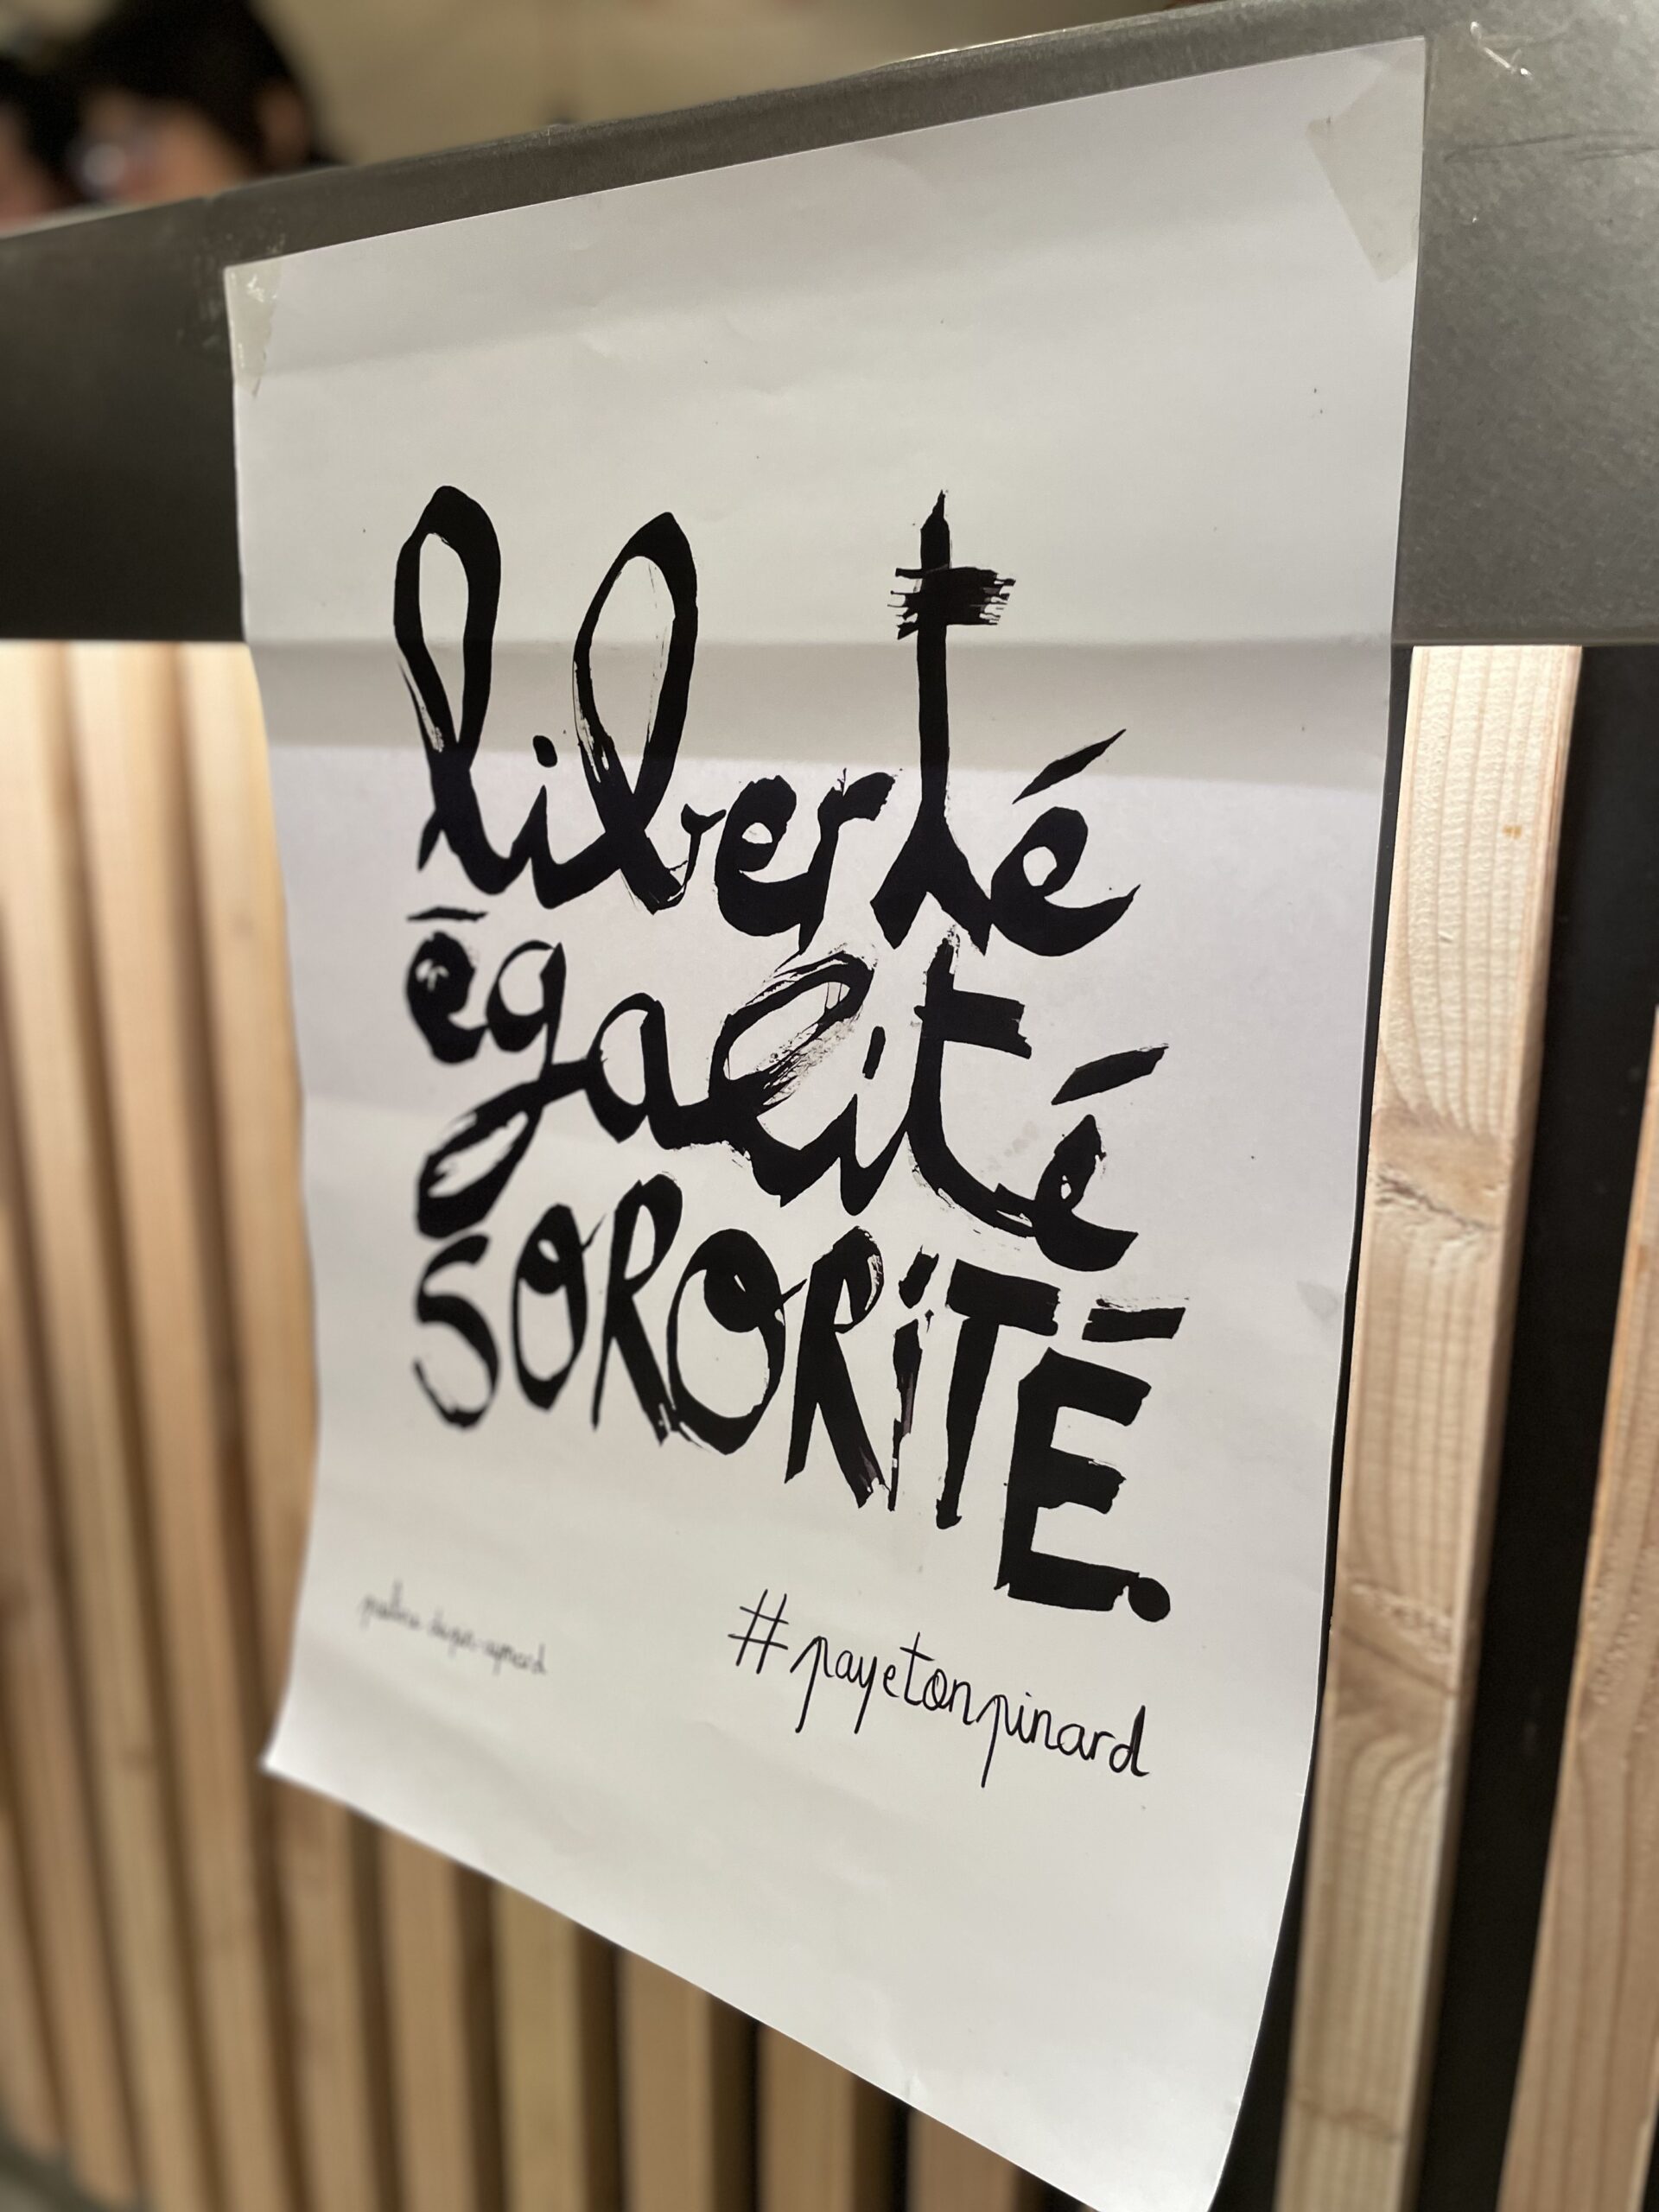 liberté
égalité
SORORiTÉ.
#payetonpinard